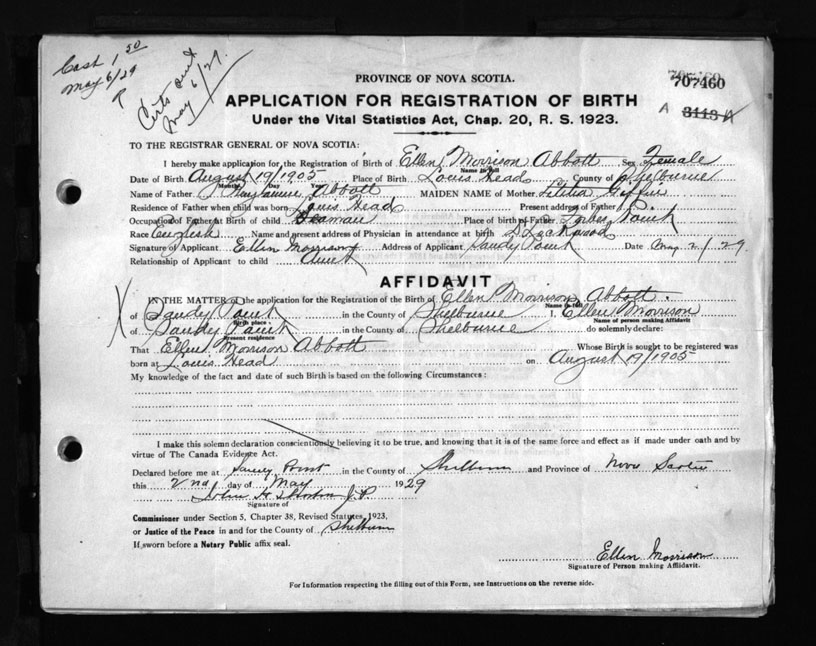 Cash 1 50
May 6/29
Certs sent
May 6/29.
PROVINCE OF NOVA SCOTIA.
707460
APPLICATION FOR REGISTRATION OF BIRTH
A 3113
Under the Vital Statistics Act, Chap. 20, R. S. 1923.
TO THE REGISTRAR GENERAL OF NOVA SCOTIA:
I hereby make application for the Registration of Birth of Ellen Morrison Abbott Sex Female
Name in full
Date of Birth August 19/1905 Place of Birth Louis Head County of Shelburne
Month Day Year
Name of Father Abbott MAIDEN NAME of Mother Giffin
Residence of Father when child was born Louis Head Present address of Father
Occupation of Father at Birth of child Seaman Place of birth of Father Forbes Point
Race English Name and present address of Physician in attendance at birth Lockwood
Signature of Applicant Ellen Morrison Address of Applicant Sandy Point Date May 2/29
Relationship of Applicant to child Aunt
AFFIDAVIT
IN THE MATTER of the application for the Registration of the Birth of Ellen Morrison Abbott.
Name in full
of Sandy Point in the County of Shelburne I, Ellen Morrison
Birth place Name of person making Affidavit
of Sandy Point in the County of Shelburne do solemnly declare:
Present residence
That Ellen Morrison Abbott Whose Birth is sought to be registered was
born at Louis Head on August 19/1905
My knowledge of the fact and date of such Birth is based on the following Circumstances:
I make this solemn declaration conscientiously believing it to be true, and knowing that it is of the same force and effect as if made under oath and by
virtue of The Canada Evidence Act.
Declared before me at Sandy Point in the County of Shelburne and Province of Nova Scotia
this 2nd day of May 1929
John H J.P.
Signature of
Commissioner under Section 5, Chapter 38, Revised Statutes, 1923,
or Justice of the Peace in and for the County of Shelburne
If sworn before a Notary Public affix seal.
Ellen Morrison
Signature of Person making Affidavit.
For Information respecting the filling out of this Form, see Instructions on the reverse side.